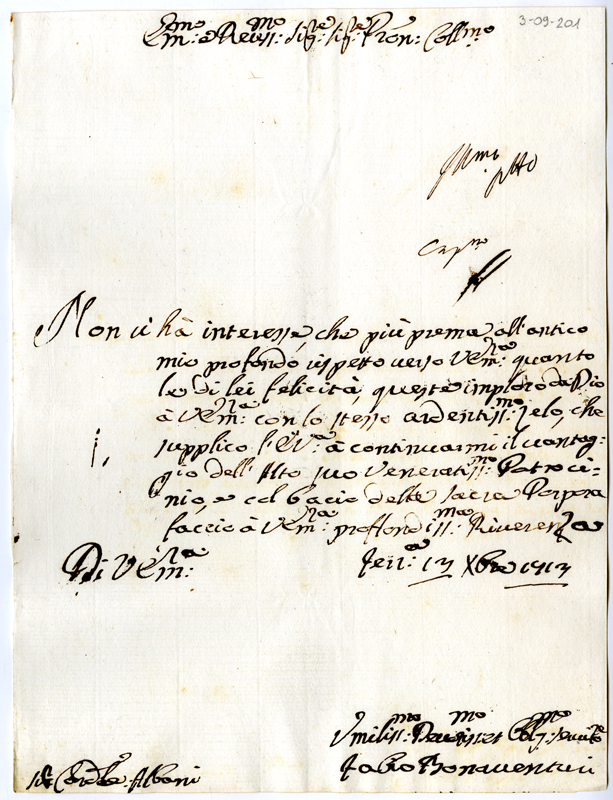 3-09-201
Em:mo e Reuss:mo Sig:re Sig:re Pron: Coll:mo
Non ui hà interesse, che più prema all'antico
mio profondo rispetto uerso VEm:za quanto
le di lei felicità, queste imploro da Dio
à VEm:za con lo stesso ardentiss:mo zelo, che
supplico l'E V:a à continuarmi il uantag-
gio dell'Alto suo Veneratiss:mo Patroci-
nio, e col bacio della Sacra Porpora
faccio à VEm:za proffondiss:ma Riuerenza
Di VEm:za
13 Xbre 1713
Vmiliss:mo Deuotiss:mo et Obblig:mo Seruit:re
Fabio Bonauenturi
Albani